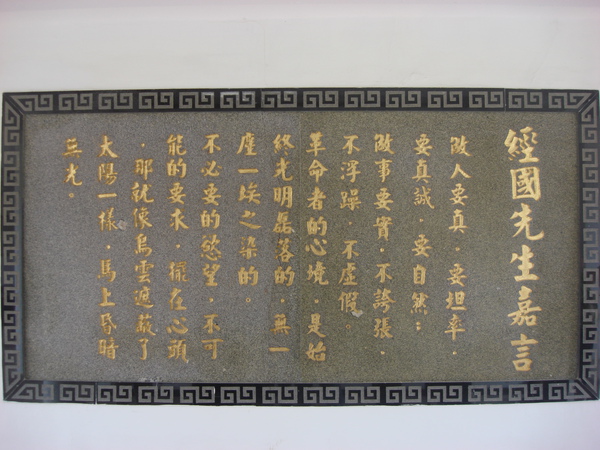 經國先生嘉言
做人要真，要坦率，
要真誠，要自然；
做事要實，不誇張，
不浮躁，不虛假。
革命者的心境，是始
終光明磊落的，無一
塵一埃之染的。
不必要的慾望，不可
能的要求，擺在心頭
，那就像烏雲遮蔽了
太陽一樣，馬上昏暗
無光。